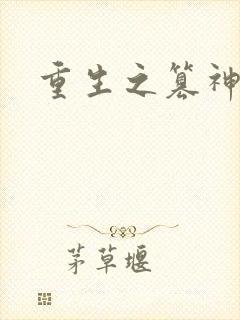 重生之篡神
茅草堰